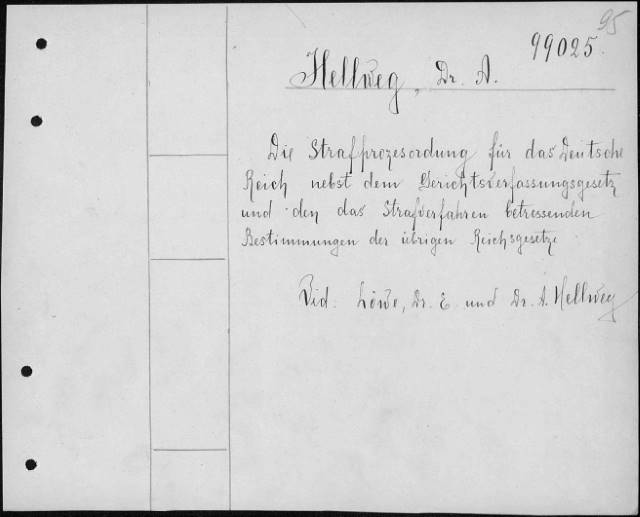 95
99025.
Hellweg, Dr. A.
Die Strafprozesordung für das Deutsche
Reich nebst dem Gerichtsverfassungsgesetz
und den das Strafverfahren betressenden
Bestimmungen der übrigen Reichsgesetze
Vid. Löwe, Dr. E. und Dr. A. Hellweg